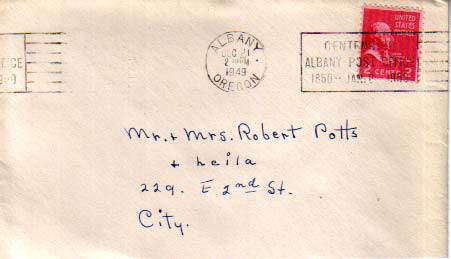 ALBANY
DEC 21
1949
OREGON
CENTENNIAL
ALBANY POST OFFICE
1850
UNITED
STATES
2 CENTS 2
Mr. + Mrs. Robert Potts
+ Leila
229. E 2nd St.
City.